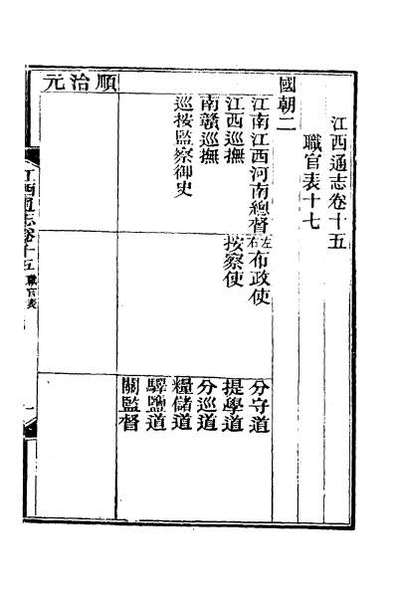 江西通志卷十五
職官表十七
國朝二
江南江西河南總督
江西巡撫
南贛巡撫
巡按監察御史
左右布政使
按察使
分守道
提學道
分巡道
糧儲道
驛鹽道
關監督
順治元
江西通志卷十五 職官表
一